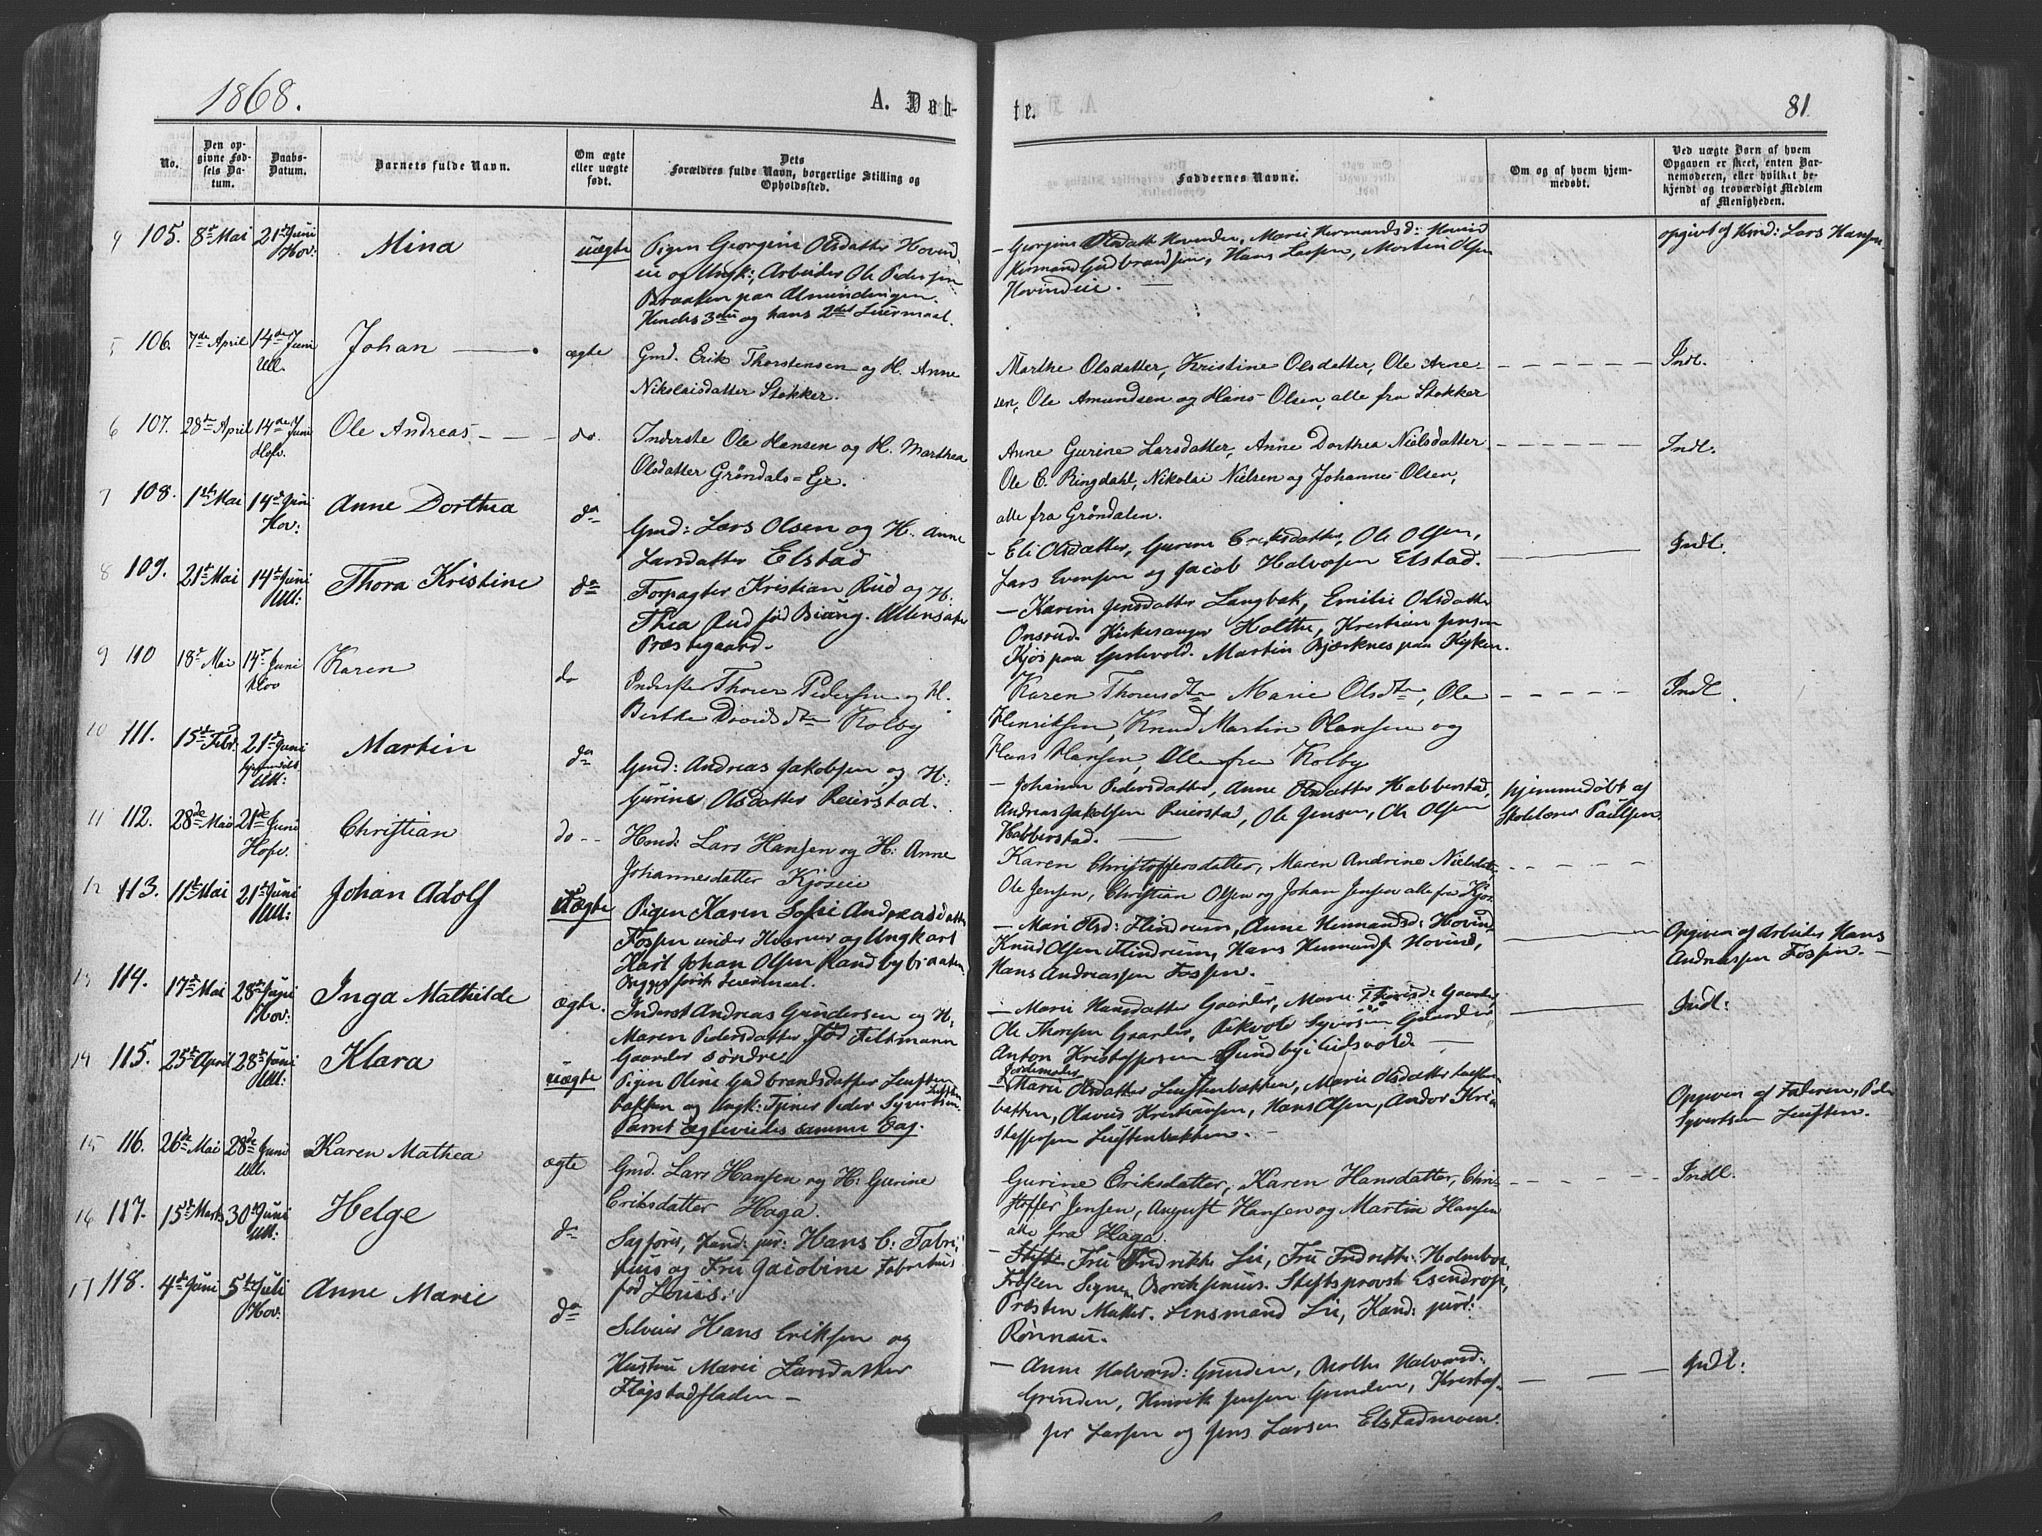 1868.
A. Døb-
te.
81.
No.
Den op-
givne Fød-
sels Da-
tum.
Daabs-
Datum.
Barnets fulde Navn.
Om ægte
eller uægte
født.
Dets
Forældres fulde Navn, borgerlige Stilling og
Opholdssted.
Faddernes Navne.
Om og af hvem hjem-
medøbt.
Ved uægte Børn af hvem
Opgaven er skeet, enten Bar-
nemoderen, eller hvilket be-
kjendt og troværdigt Medlem
af Menigheden.
105. 8de Mai 21de Juni
Hov:
Mina
uægte
Pigen Georgine Olsdatter Hovind
eie og Ungk: Arbeider Ole Pedersen
Braaten paa Almindingen.
Hendes 3die og hans 2det Leiermaal.
Hermand Gudbrandsen, Hans Larsen, Morten Olsen
Hovindeie.
opgivet af Kmd: Lars Hansen
106. 7de April 14de Juni
Ull.
Johan
ægte
Gmd. Erik Thorstensen og H. Anne
Nikolaisdatter Stokker.
Marthe Olsdatter, Kristine Olsdatter, Ole Arne-
sen, Ole Amundsen og Hans Olsen, alle fra Stokker
Indl.
107. 28de April 14de Juni
Hofv.
Ole Andreas
do.
Inderste Ole Hansen og H. Marthea
Olsdatter Grøndals=Eje.
Anne Gurine Larsdatter, Anne Dorthea Nielsdatter
Ole C. Ringdahl, Nikolai Nielsen og Johannes Olsen,
alle fra Grøndalen.
Indl.
108. 1ste Mai 14de Juni
Hov:
Anne Dorthea
do
Gmd: Lars Olsen og H. Anne
Larsdatter Elstad
Eli Olsdatter, Gurine Eriksdatter, Ole Olsen,
Lars Evensen og Jacob Halvorsen Elstad.
Indl.
109. 21de Mai 14de Juni
Ull:
Thora Kristine
do
Forpagter Kristian Rud og H.
Thea Rud født Ullensaker
Præstegaard.
Karen Jensdatter Langbak, Emilie Olsdatter
Onsrud. Kirkesanger Holthe, Kristian Jensen
Kjos paa Gystvold. Martin Bjerknes paa Kyken.
110 18de Mai 14de Juni
Hov
Karen
do
Inderste Thorer Pedersen og H.
Berthe Davidsdtr Kolby
Karen Thorersdtr Marie Olsdtr, Ole
Henriksen, Knud Martin Hansen og
Hans Hansen, Alle fra Kolby
Indl.
111. 15de Febr. 21de Juni
Ull:
Martin
do
Gmd: Andreas Jakobsen og H:
Gurine Olsdatter Reierstad.
Johanne Pedersdatter, Anne Olsdatter Habberstad,
Andreas Jakobsen Reierstad, Ole Jensen, Ole Olsen
Habberstad.
hjemmedøbt af
Skolelærer Paulsen.
112. 28de Mai 21de Juni
Hofv.
Christian
do
Hmd: Lars Hansen og H: Anne
Johannesdatter Kjoseie
Karen Christoffersdatter, Maren Andrine Nielsdtr,
Ole Jensen, Christian Olsen og Johan Jensen alle fra Kjos.
113. 11te Mai 21de Juni
Ull:
Johan Adolf
Uægte
Pigen Karen Sofie Andreasdatter
Fossen under Hværner og Ungkarl
Karl Johan Olsen Randbybraaten
Begges første Leiermaal.
Mari Olsd: Flindrum, Anne Hermandsd: Hovind,
Knud Olsen Flindrum, Hans Hermands. Hovind,
Hans Andreassen Fossen.
Opgiven af Arbeider Hans
Andreassen Fossen.
114. 17de Mai 28de Juni
Hov:
Inga Mathilde
ægte.
Inderst Andreas Gundersen og H.
Maren Pedersdatter født Feltmann
Gaarder søndre
Marie Hansdatter Gaarder, Marie Thoresd: Gaarder,
Ole Thoresen Gaarder, Syversen Gaarder
Anton Kristoffersen Sundby i Eidsvold
Indl:
115. 25de April 28de Juni
Ull:
Klara
uægte
Pigen Oline Gudbrandsdatter Lersten-
bakken og Ungk: Tjener Peder Syvertsen
Parret Ægtevies samme Dag.
Jordemoder
Marie Olsdatter
bakken, Olavus Kristiansen, Hans Olsen, Andor Kri-
stoffersen
Opgiven af Faderen, Peder
Syvertsen
116. 26de Mai 28de Juni
Ull.
Karen Mathea
ægte
Gmd. Lars Hansen og H: Gurine
Eriksdatter Haga.
Gurine Eriksdatter, Karen Hansdatter, Chri-
stoffer Jensen, August Hansen og Martin Hansen
alle fra Haga.
Indl.
117. 15de Marts 30te Juni
Ull:
Helge
do
Sagfører, Kand: jur: Hans C. Fabri-
cius og Fru Jacobine Fabricius
født
Fru Fredrikke Lie, Fru Fredrikke Holmboe,
Frøken Signe Stiftsprovst Esendrop,
Præsten Lensmand Lie, Kand: juris:
Rønnau.
118. 4de Juni 5te Juli
Hov:
Anne Marie
do
Selveier Hans Eriksen og
Hustru Marie Larsdatter
Flagstadfladen
Anne Halvorsd: Grinden, Halvorsd:
Grinden, Henrik Jensen Grinden, Kristof-
fer Larsen og Jens Larsen Elstadmoen.
Indl: